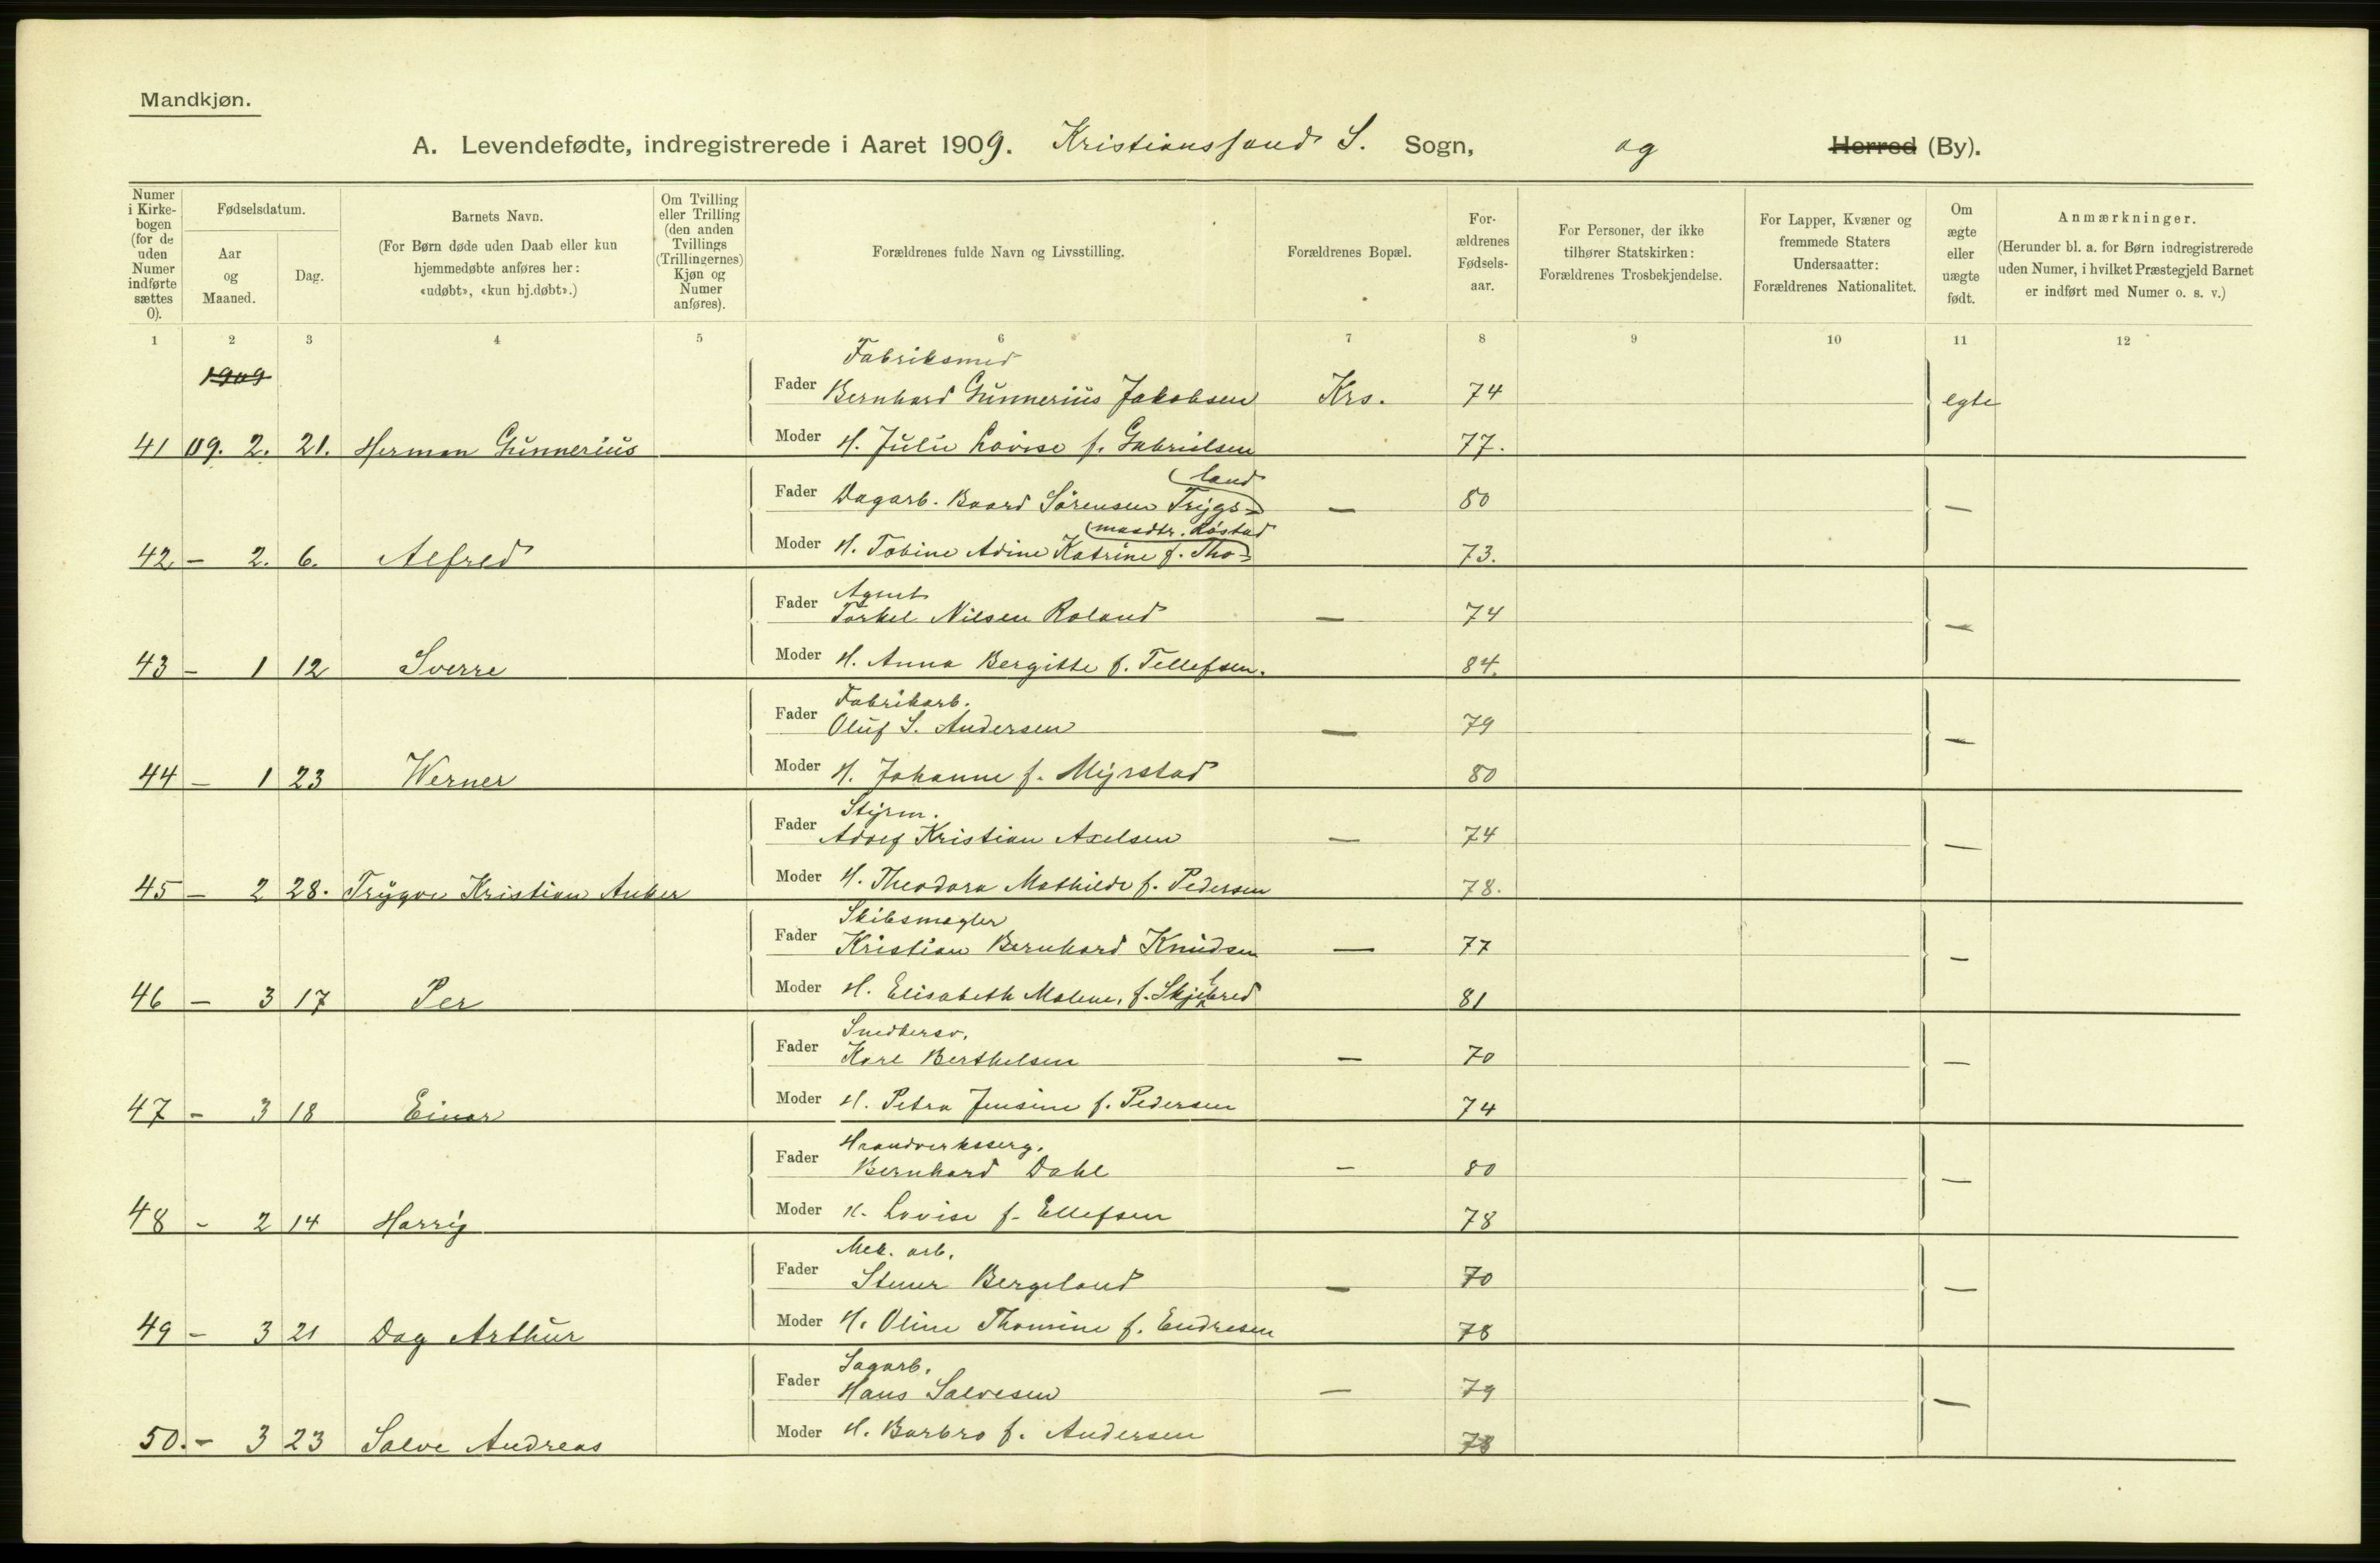 Mandkjøn.
A. Levendefødte, indregistrerede i Aaret 1909. Kristianssand S. Sogn, og Herred (By).
Numer i Kirkebogen (for de uden Numer indførte sættes 0).
Fødselsdatum.
Aar og Maaned.
Dag.
Barnets Navn.
(For Børn døde uden Daab eller kun hjemmedøbte anføres her: «udøbt», «kun hj.døbt».)
Om Tvilling eller Trilling (den anden Tvillings (Trillingernes) Kjøn og Numer anføres).
Forældrenes fulde Navn og Livsstilling.
Forældrenes Bopæl.
Forældrenes Fødselsaar.
For Personer, der ikke tilhører Statskirken: Forældrenes Trosbekjendelse.
For Lapper, Kvæner og fremmede Staters Undersaatter: Forældrenes Nationalitet.
Om ægte eller uægte født.
Anmærkninger.
(Herunder bl. a. for Børn indregistrerede uden Numer, i hvilket Præstegjeld Barnet er indført med Numer o. s. v.)
1 2 3 4 5 6 7 8 9 10 11 12
1909
Fabriksmed
Fader Bernhard Gunnerius Jakobsen Krs. 74 egte
41 09. 2. 21. Herman Gunnerius Moder H. Julie Lovise f. Gabrielsen 77.
land
Fader Dagarb. Baard Sörensen Trygs= — 80 —
mandtr. Røstad
42 - 2. 6. Alfred Moder H. Tobine Adine Katrine f. Tho= 73.
Agent
Fader Torkel Nilsen Roland — 74 —
43 - 1 12 Sverre Moder H. Anna Bergitte f. Tellefsen. 84.
Fabrikarb.
Fader Oluf S. Andersen — 79 —
44 - 1 23 Werner Moder H. Johanne f. Myrstad 80
Styrm.
Fader Adolf Kristian Axelsen — 74 —
45 - 2 28. Trygve Kristian Anker Moder H. Theodora Mathilde f. Pedersen 78.
Skibsmægler
Fader Kristian Bernhard Knudsen — 77 —
46 - 3 17 Per Moder H. Elisabeth Malene, f. Skjelbred 81
Snedkersv.
Fader Karl Berthelsen — 70 —
47 - 3 18 Einar Moder H. Petra Jensine f. Pedersen 74
Haandverkssveg.
Fader Bernhard Dahl — 80 —
48 - 2 14 Harry Moder H. Lovise f. Ellefsen 78
Mek. arb.
Fader Stener Bergeland — 70 —
49 - 3 21 Dag Arthur Moder H. Oline Thomine f. Endresen 78
Sagarb.
Fader Hans Salvesen — 79 —
50. - 3 23 Salve Andreas Moder H. Barbro f. Andersen 78